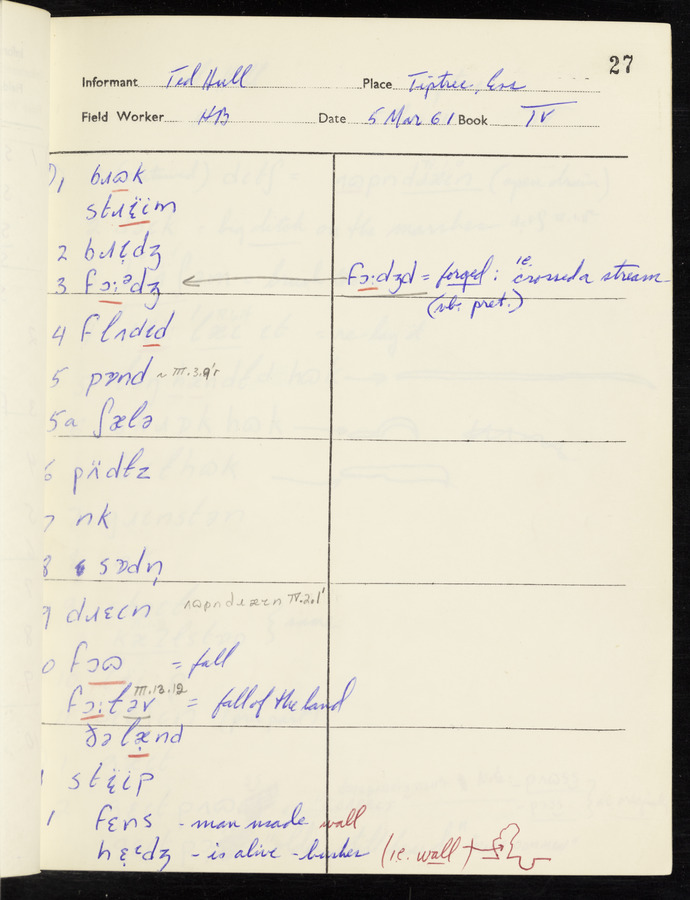 27
Informant Ted Hull Place Tiptree, Ess
Field Worker HB Date 5 Mar 61 Book IV
1 bɹʊk
stɹïim
2 bɹɪdʒ
3 fɔːᵊdʒ ← fɔːdʒd = forged : ie. crossed a stream
(vb. pret.)
4 flʌdɪd
5 pɒnd ~ III.3.9'r
5a ʃælə
6 pʌ̈dɫz
7 nk
8 sɒdn̩
9 dɹɛɪn ɹʌpndɹæɪn IV.2.1'
0 fɔʊ = fall
fɔːtəv III.13.12 = fall of the land
ðəlænd
1 stïip
1 fɛns - man made wall
hɛɛdʒ - is alive - bushes (ie. wall)